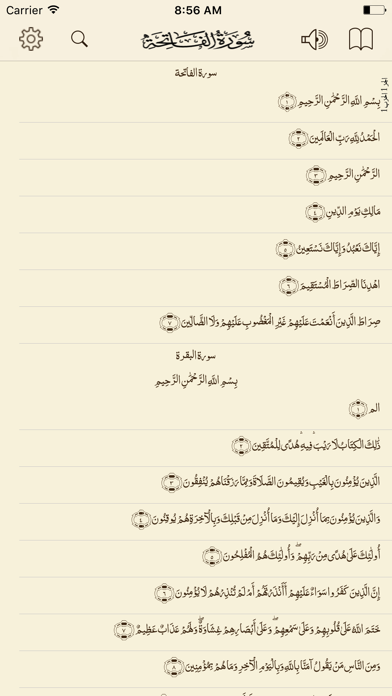 Carrier 8:56 AM
سُورَةُ الفَاتِحَة
سورة الفاتحة
الجزء ١ الحزب ١
بِسْمِ اللَّهِ الرَّحْمَٰنِ الرَّحِيمِ ﴿١﴾
الْحَمْدُ لِلَّهِ رَبِّ الْعَالَمِينَ ﴿٢﴾
الرَّحْمَٰنِ الرَّحِيمِ ﴿٣﴾
مَالِكِ يَوْمِ الدِّينِ ﴿٤﴾
إِيَّاكَ نَعْبُدُ وَإِيَّاكَ نَسْتَعِينُ ﴿٥﴾
اهْدِنَا الصِّرَاطَ الْمُسْتَقِيمَ ﴿٦﴾
صِرَاطَ الَّذِينَ أَنْعَمْتَ عَلَيْهِمْ غَيْرِ الْمَغْضُوبِ عَلَيْهِمْ وَلَا الضَّالِّينَ ﴿٧﴾
سورة البقرة
بِسْمِ اللَّهِ الرَّحْمَٰنِ الرَّحِيمِ
الم ﴿١﴾
ذَٰلِكَ الْكِتَابُ لَا رَيْبَ ۛ فِيهِ ۛ هُدًى لِلْمُتَّقِينَ ﴿٢﴾
الَّذِينَ يُؤْمِنُونَ بِالْغَيْبِ وَيُقِيمُونَ الصَّلَاةَ وَمِمَّا رَزَقْنَاهُمْ يُنْفِقُونَ ﴿٣﴾
وَالَّذِينَ يُؤْمِنُونَ بِمَا أُنْزِلَ إِلَيْكَ وَمَا أُنْزِلَ مِنْ قَبْلِكَ وَبِالْآخِرَةِ هُمْ يُوقِنُونَ ﴿٤﴾
أُولَٰئِكَ عَلَىٰ هُدًى مِنْ رَبِّهِمْ ۖ وَأُولَٰئِكَ هُمُ الْمُفْلِحُونَ ﴿٥﴾
إِنَّ الَّذِينَ كَفَرُوا سَوَاءٌ عَلَيْهِمْ أَأَنْذَرْتَهُمْ أَمْ لَمْ تُنْذِرْهُمْ لَا يُؤْمِنُونَ ﴿٦﴾
خَتَمَ اللَّهُ عَلَىٰ قُلُوبِهِمْ وَعَلَىٰ سَمْعِهِمْ ۖ وَعَلَىٰ أَبْصَارِهِمْ غِشَاوَةٌ ۖ وَلَهُمْ عَذَابٌ عَظِيمٌ ﴿٧﴾
وَمِنَ النَّاسِ مَنْ يَقُولُ آمَنَّا بِاللَّهِ وَبِالْيَوْمِ الْآخِرِ وَمَا هُمْ بِمُؤْمِنِينَ ﴿٨﴾